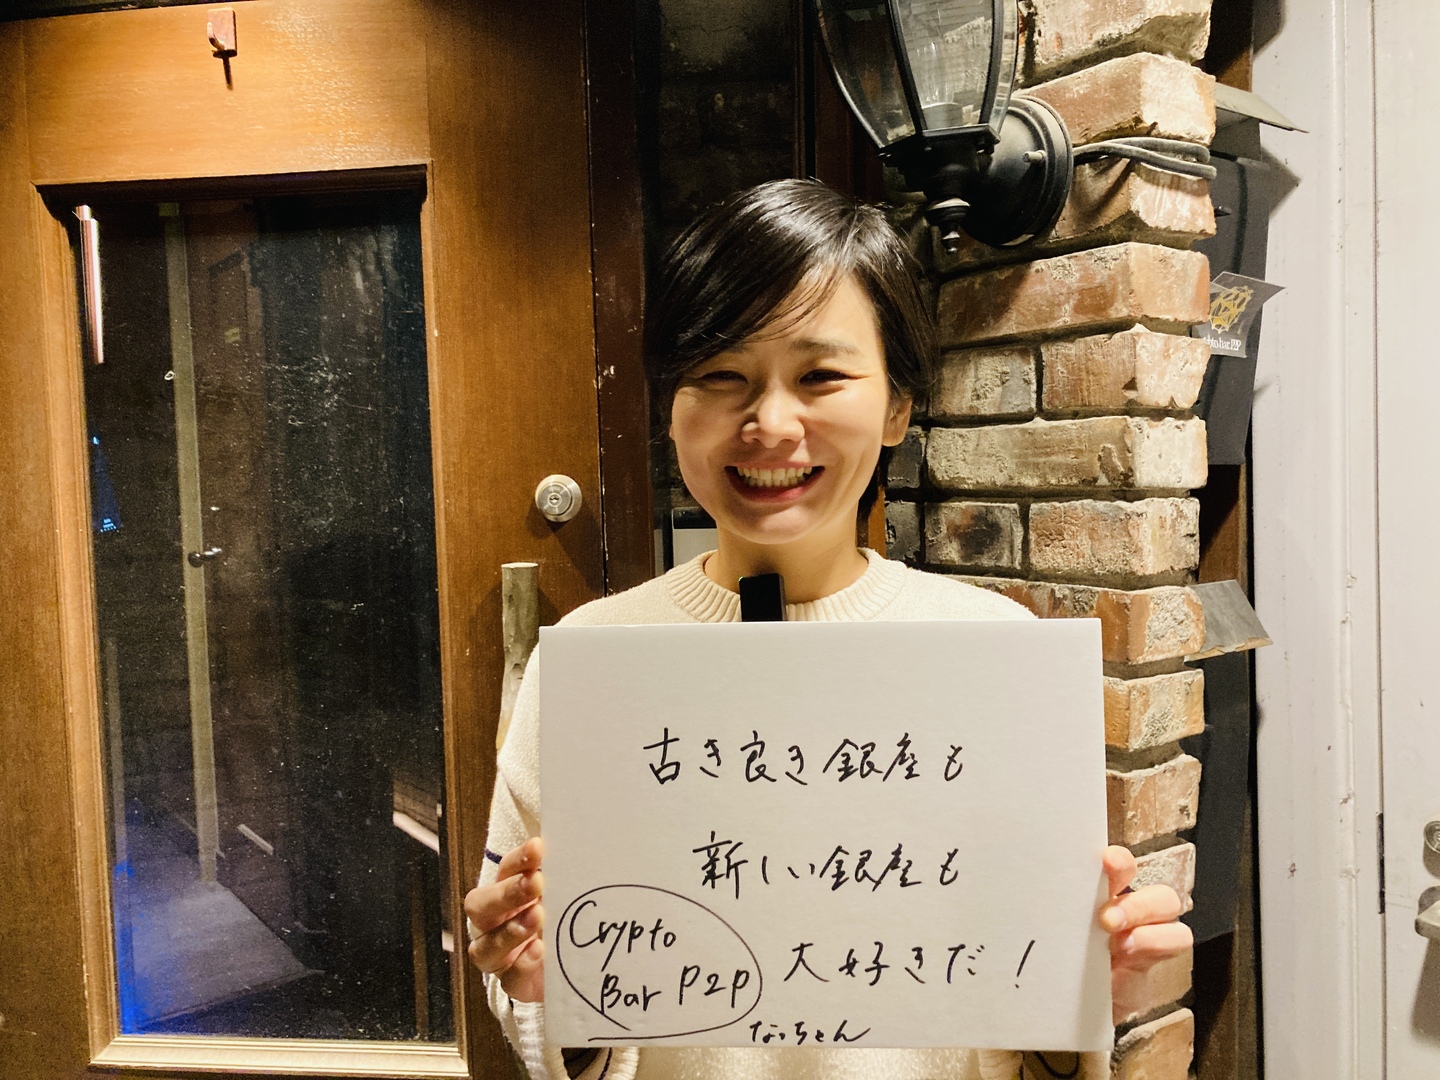 古き良き銀座も
新しい銀座も
大好きだ！
Crypto
Bar P2P
なっちゃん
bar P2P